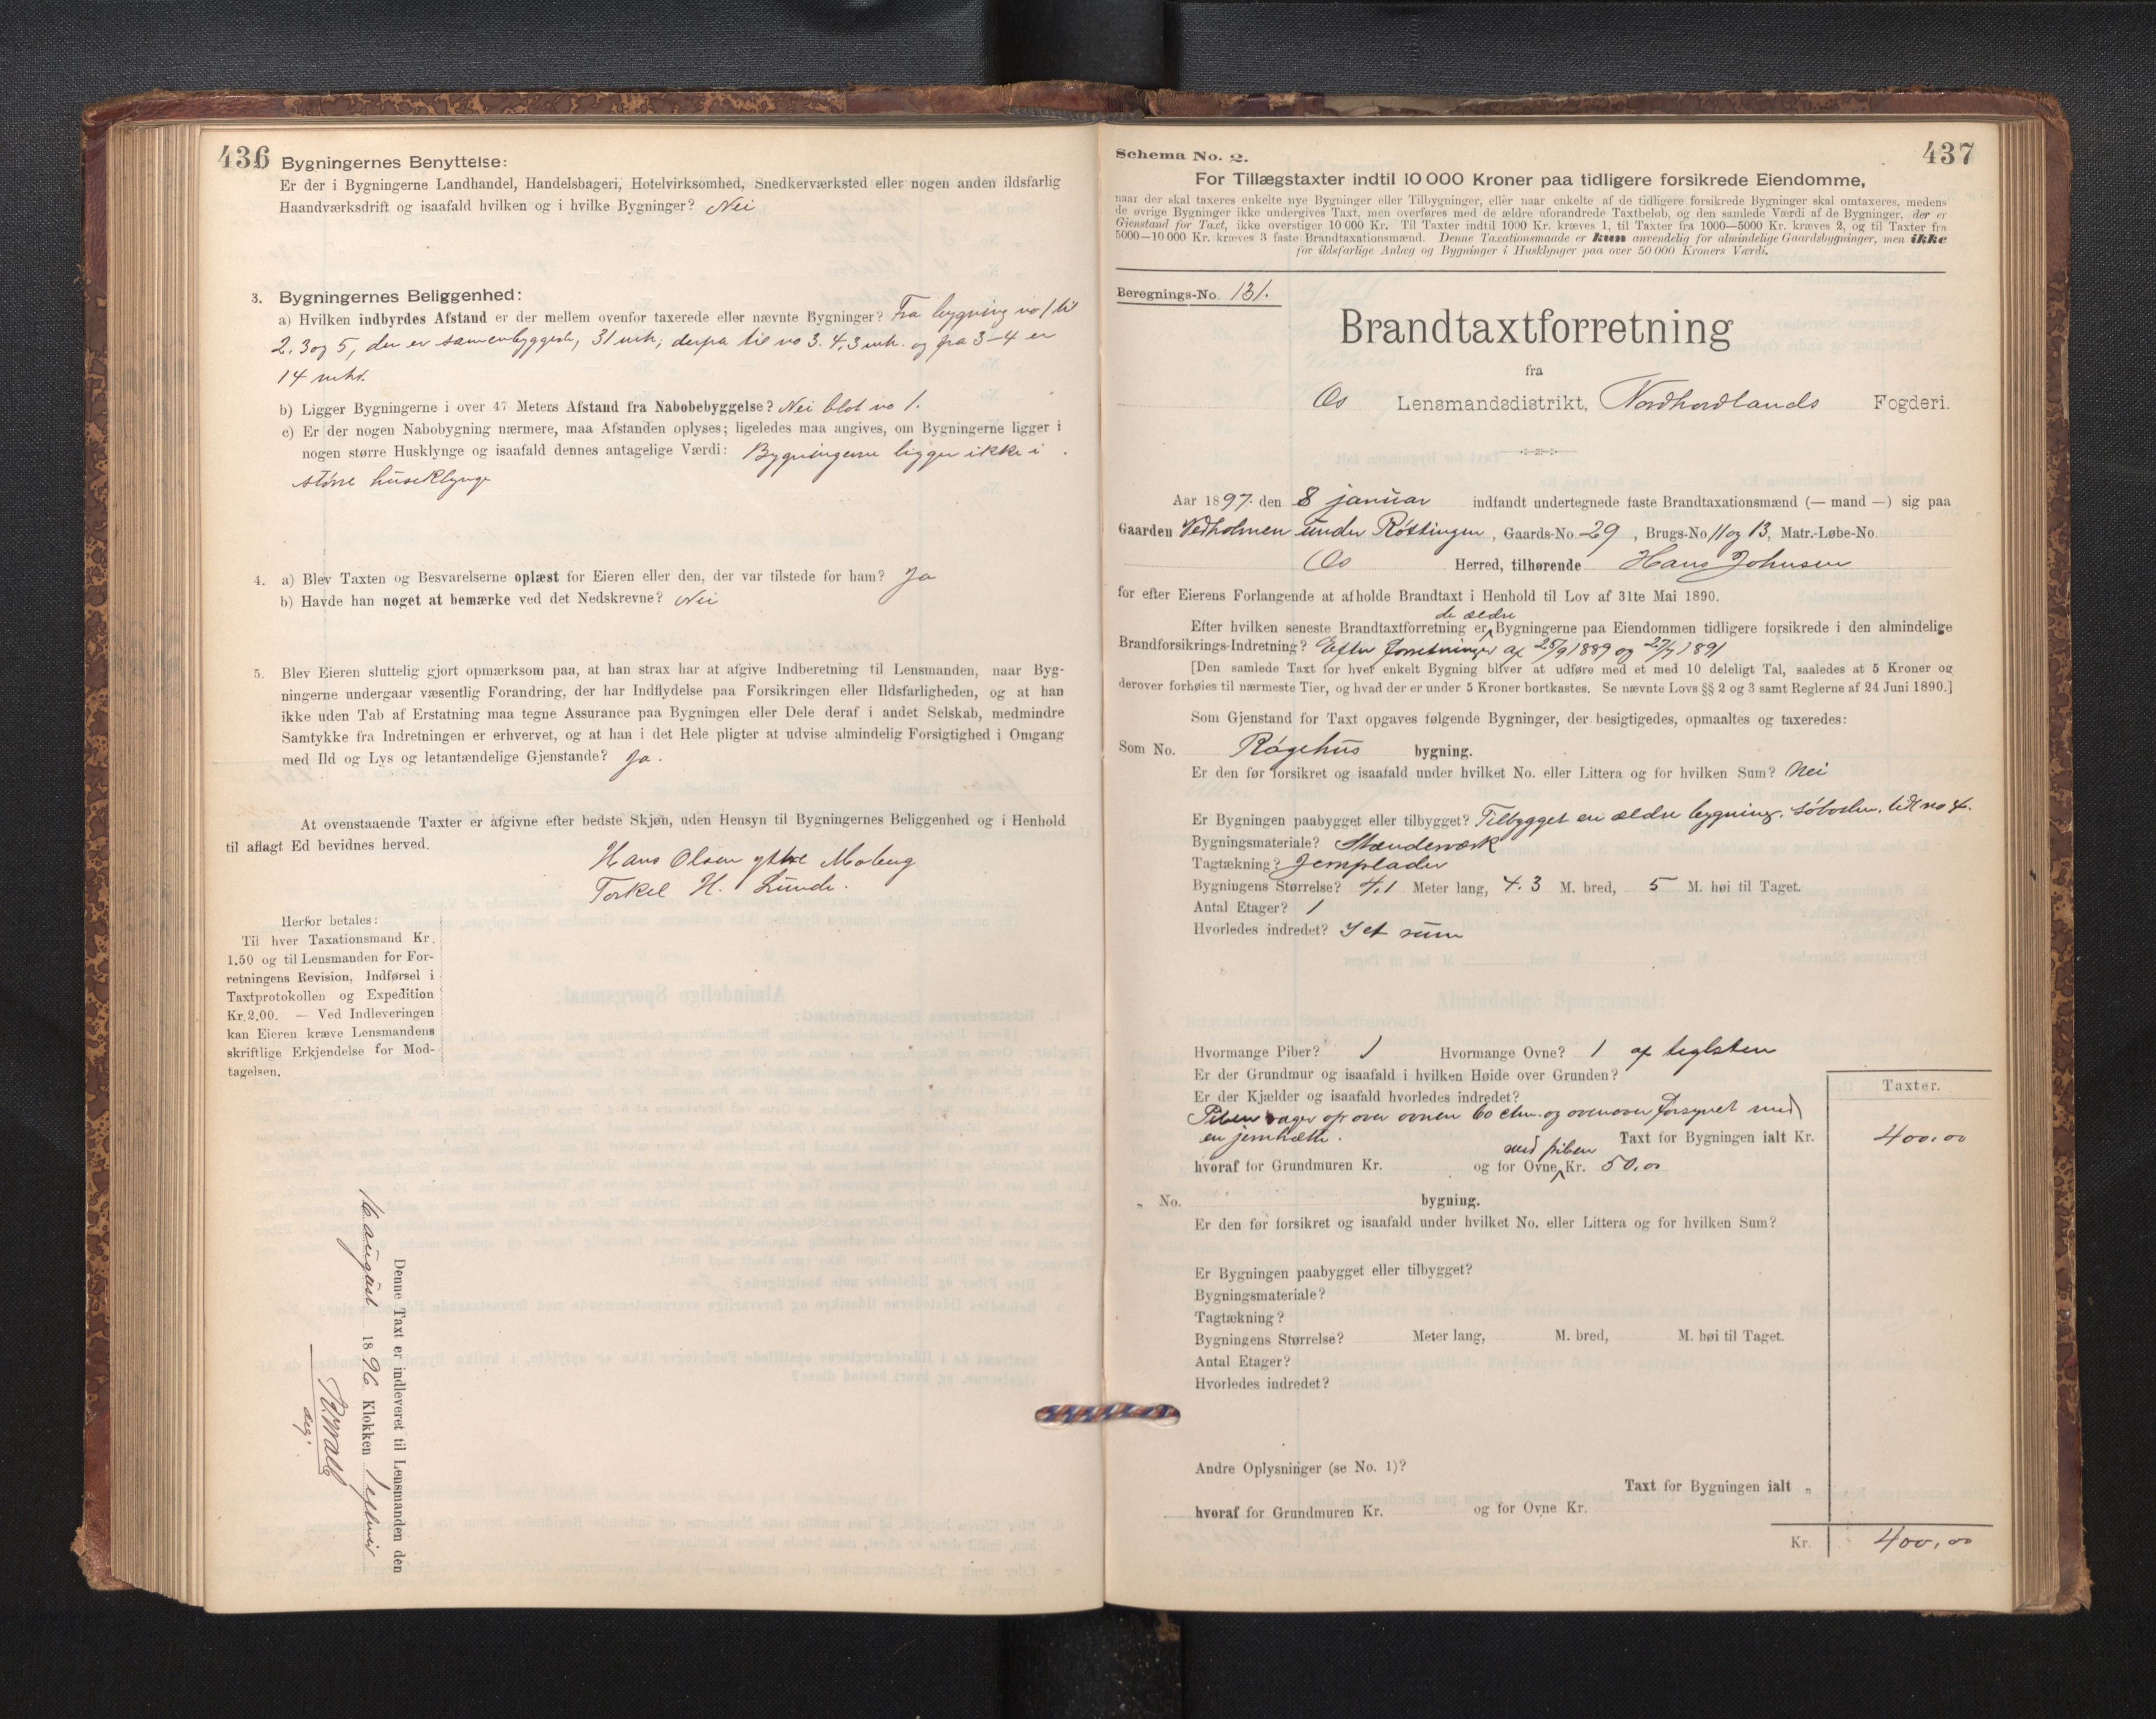 436
Bygningernes Benyttelse:
Er der i Bygningerne Landhandel, Handelsbageri, Hotelvirksomhed, Snedkerværksted eller nogen anden ildsfarlig
Haandværksdrift og isaafald hvilken og i hvilke Bygninger? Nei
3. Bygningernes Beliggenhed:
a) Hvilken indbyrdes Afstand er der mellem ovenfor taxerede eller nævnte Bygninger? Fra bygning no 1 til
2. 3 og 5, der er samenbyggede, 31 mtr, derfra til no 3. 4,3 mtr. og fra 3–4 er
14 mtr.
b) Ligger Bygningerne i over 47 Meters Afstand fra Nabobebyggelse? Nei blot no 1.
c) Er der nogen Nabobygning nærmere, maa Afstanden oplyses; ligeledes maa angives, om Bygningerne ligger i
nogen større Husklynge og isaafald dennes antagelige Værdi: Bygningerne ligger ikke i
større huseklynge
4. a) Blev Taxten og Besvarelserne oplæst for Eieren eller den, der var tilstede for ham? Ja
b) Havde han noget at bemærke ved det Nedskrevne? Nei
5. Blev Eieren sluttelig gjort opmærksom paa, at han strax har at afgive Indberetning til Lensmanden, naar Byg-
ningerne undergaar væsentlig Forandring, der har Indflydelse paa Forsikringen eller Ildsfarligheden, og at han
ikke uden Tab af Erstatning maa tegne Assurance paa Bygningen eller Dele deraf i andet Selskab, medmindre
Samtykke fra Indretningen er erhvervet, og at han i det Hele pligter at udvise almindelig Forsigtighed i Omgang
med Ild og Lys og letantændelige Gjenstande? Ja.
At ovenstaaende Taxter er afgivne efter bedste Skjøn, uden Hensyn til Bygningernes Beliggenhed og i Henhold
til aflagt Ed bevidnes herved.
Hans Olsen ytre Moberg
Torkel H. Lunde.
Herfor betales:
Til hver Taxationsmand Kr.
1.50 og til Lensmanden for For-
retningens Revision, Indførsel i
Taxtprotokollen og Expedition
Kr. 2.00. — Ved Indleveringen
kan Eieren kræve Lensmandens
skriftlige Erkjendelse for Mod-
tagelsen.
Denne Taxt er indleveret til Lensmanden den
16 august 1896 Klokken
437
Schema No. 2.
For Tillægstaxter indtil 10 000 Kroner paa tidligere forsikrede Eiendomme,
naar der skal taxeres enkelte nye Bygninger eller Tilbygninger, eller naar enkelte af de tidligere forsikrede Bygninger skal omtaxeres, medens
de øvrige Bygninger ikke undergives Taxt, men overføres med de ældre uforandrede Taxtbeløb, og den samlede Værdi af de Bygninger, der er
Gienstand for Taxt, ikke overstiger 10 000 Kr. Til Taxter indtil 1000 Kr. kræves 1, til Taxter fra 1000—5000 Kr. kræves 2, og til Taxter fra
5000—10 000 Kr. kræves 3 faste Brandtaxationsmænd. Denne Taxationsmaade er kun anvendelig for almindelige Gaardsbygninger, men ikke
for ildsfarlige Anlæg og Bygninger i Husklynger paa over 50 000 Kroners Værdi.
Beregnings-No. 131.
Brandtaxtforretning
fra
Os Lensmandsdistrikt, Nordhordlands Fogderi.
Aar 1897 den 8 januar indfandt undertegnede faste Brandtaxationsmænd (— mand —) sig paa
Gaarden Vedholmen under Røttingen, Gaards-No. 29, Brugs-No 11 og 13, Matr.-Løbe-No.
Os Herred, tilhørende Hans Johnsen
for efter Eierens Forlangende at afholde Brandtaxt i Henhold til Lov af 31te Mai 1890.
de ældre
Efter hvilken seneste Brandtaxtforretning er Bygningerne paa Eiendommen tidligere forsikrede i den almindelige
Brandforsikrings-Indretning? Efter forretninger af 25/9 1889 og 27/7 1891
[Den samlede Taxt for hver enkelt Bygning bliver at udføre med et med 10 deleligt Tal, saaledes at 5 Kroner og
derover forhøies til nærmeste Tier, og hvad der er under 5 Kroner bortkastes. Se nævnte Lovs §§ 2 og 3 samt Reglerne af 24 Juni 1890.]
Som Gjenstand for Taxt opgaves følgende Bygninger, der besigtigedes, opmaaltes og taxeredes:
Som No. Røgehus bygning.
Er den før forsikret og isaafald under hvilket No. eller Littera og for hvilken Sum? Nei
Er Bygningen paabygget eller tilbygget? Tilbygget en ældre bygning, søboden, no 4.
Bygningsmateriale? Stændeværk
Tagtækning? Jernplader
Bygningens Størrelse? 4.1 Meter lang, 4.3 M. bred, 5 M. høi til Taget.
Antal Etager? 1
Hvorledes indredet? I et rum
Hvormange Piber? 1 Hvormange Ovne? 1 af teglsten
Er der Grundmur og isaafald i hvilken Høide over Grunden?
Er der Kjælder og isaafald hvorledes indredet?
Piben rager op over ovnen 60 ctm. og ovenover forsynet med
en jernhætte.
Taxter.
Taxt for Bygningen ialt Kr. 400,00
med piben
hvoraf for Grundmuren Kr. og for Ovne Kr. 50,00
„ No. bygning.
Er den før forsikret og isaafald under hvilket No. eller Littera og for hvilken Sum?
Er Bygningen paabygget eller tilbygget?
Bygningsmateriale?
Tagtækning?
Bygningens Størrelse? Meter lang, M. bred, M. høi til Taget.
Antal Etager?
Hvorledes indredet?
Andre Oplysninger (se No. 1)?
Taxt for Bygningen ialt „
hvoraf for Grundmuren Kr. og for Ovne Kr.
Kr. 400,00